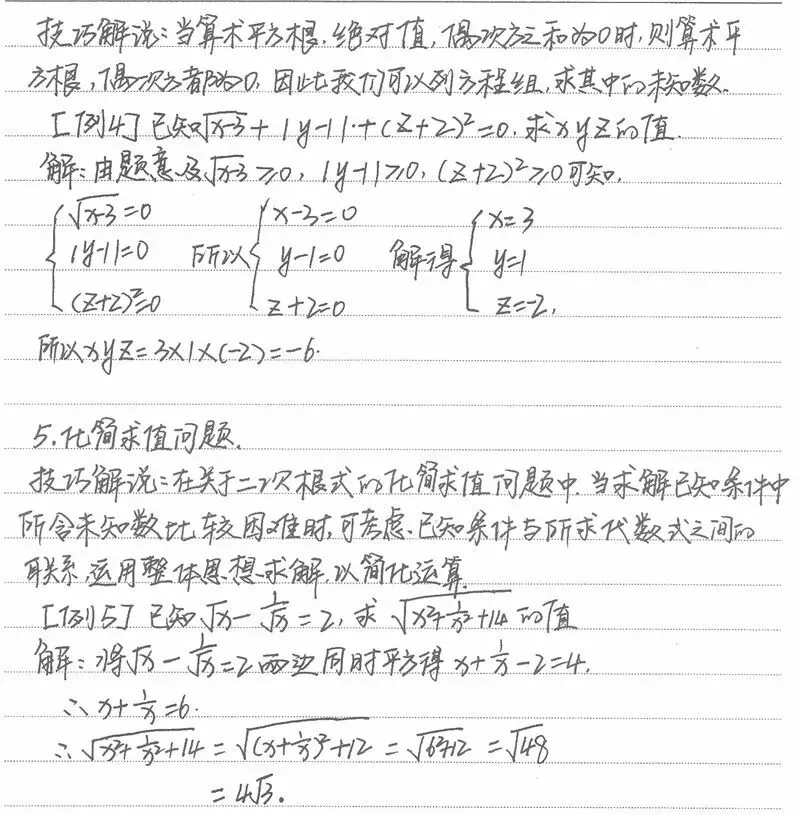 技巧解说:当算术平方根,绝对值,偶次方之和为0时,则算术平
方根,偶次方都为0,因此我们可以列方程组,求其中的未知数.
[例4]已知√(x-3)+|y-1|+(z+2)²=0,求xyz的值.
解:由题意及√(x-3)≥0,|y-1|≥0,(z+2)²≥0可知,
{√(x-3)=0 所以{x-3=0 解得{x=3
|y-1|=0 y-1=0 y=1
(z+2)²=0 z+2=0 z=-2,
所以xyz=3×1×(-2)=-6.
5.化简求值问题.
技巧解说:在关于二次根式的化简求值问题中,当求解已知条件中
所含未知数比较困难时,可考虑已知条件与所求代数式之间的
联系,运用整体思想求解,以简化运算.
[例5]已知√x-1/√x=2,求√(x²+1/x²+14)的值
解:将√x-1/√x=2两边同时平方得x+1/x-2=4,
∴x+1/x=6.
∴√(x²+1/x²+14)=√((x+1/x)²+12)=√(6²+12)=√48
=4√3.